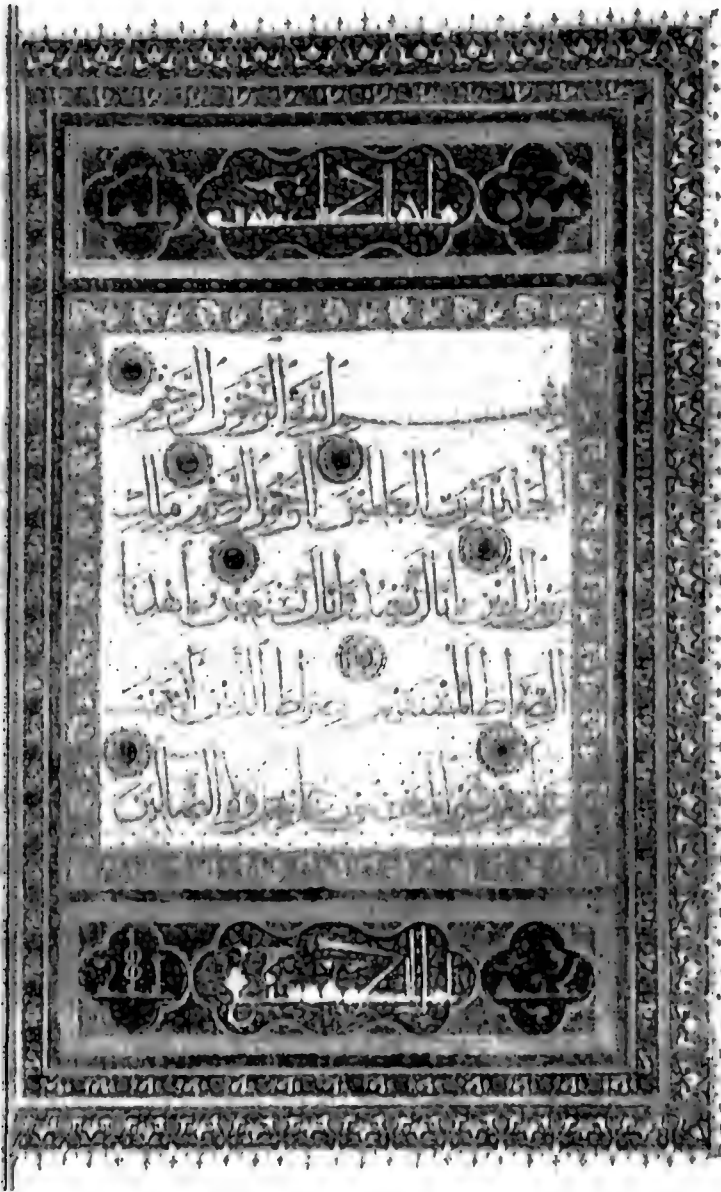 سورة
بسم الله الرحمن الرحيم
الحمد لله رب العالمين الرحمن الرحيم ملك
يوم الدين اياك نعبد واياك نستعين اهدنا
الصراط المستقيم صراط الذين انعمت
عليهم غير المغضوب عليهم ولا الضالين